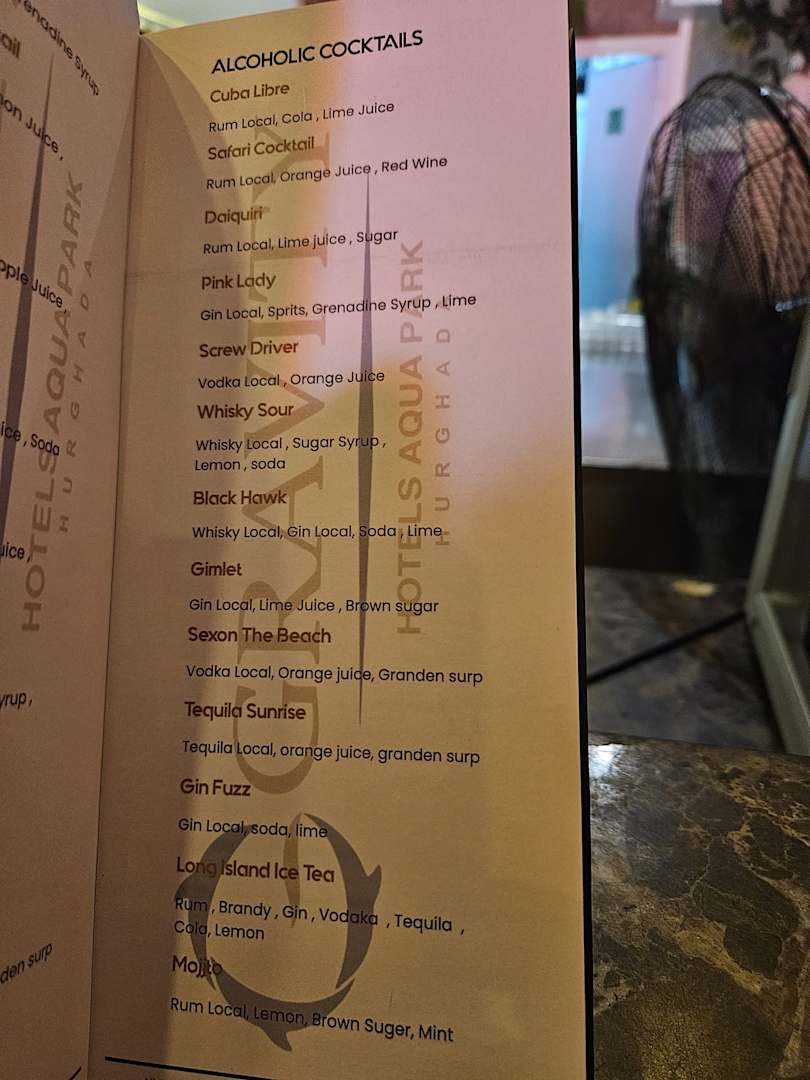 renadine Syrup
ail
on Juice,
pple Juice,
ice, Soda
uice,
yrup,
den surp
HOTELS AQUA PARK
HURGHADA
ALCOHOLIC COCKTAILS
Cuba Libre
Rum Local, Cola , Lime Juice
Safari Cocktail
Rum Local, Orange Juice , Red Wine
Daiquiri
Rum Local, Lime juice , Sugar
Pink Lady
Gin Local, Sprits, Grenadine Syrup , Lime
Screw Driver
Vodka Local , Orange Juice
Whisky Sour
Whisky Local , Sugar Syrup ,
Lemon , soda
Black Hawk
Whisky Local, Gin Local, Soda , Lime
Gimlet
Gin Local, Lime Juice , Brown sugar
Sexon The Beach
Vodka Local, Orange juice, Granden surp
Tequila Sunrise
Tequila Local, orange juice, granden surp
Gin Fuzz
Gin Local, soda, lime
Long Island Ice Tea
Rum , Brandy , Gin , Vodaka , Tequila ,
Cola, Lemon
Mojito
Rum Local, Lemon, Brown Suger, Mint
GRAVITY
HOTELS AQUA PARK
HURGHAD